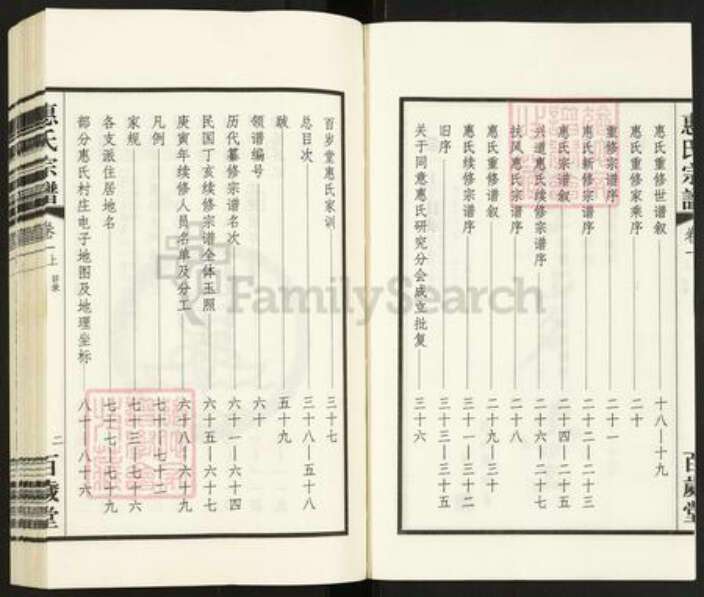 惠氏宗譜
卷一
百歲堂
惠氏重修世谱叙 十八—十九
惠氏重修家乘序 二十
重修宗谱序 二十一
惠氏新修宗谱序 二十二—二十三
惠氏宗谱叙 二十四—二十五
兴道惠氏续修宗谱序 二十六—二十七
扶风惠氏宗谱序 二十八
惠氏重修谱叙 二十九—三十
惠氏续修宗谱序 三十一—三十二
旧序 三十三—三十五
关于同意惠氏研究分会成立批复 三十六
百岁堂惠氏家训 三十七
总目次 三十八—五十八
跋 五十九
领谱编号 六十
历代纂修宗谱名次 六十一—六十四
民国丁亥续修宗谱全体玉照 六十五—六十七
庚寅年续修人员名单及分工 六十八—六十九
凡例 七十—七十二
家规 七十三—七十六
各支派住居地名 七十七—七十九
部分惠氏村庄电子地图及地理坐标 八十—八十六
惠氏宗譜
卷一上
目录
二
百歲堂
FamilySearch